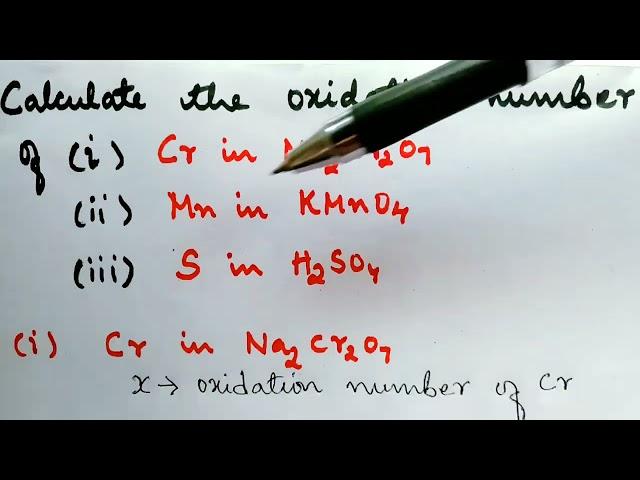 Calculate the number
of (i) Cr in
(ii) Mn in KMnO4
(iii) S in H2SO4
(i) Cr in Na2Cr2O7
x → oxidation number of Cr